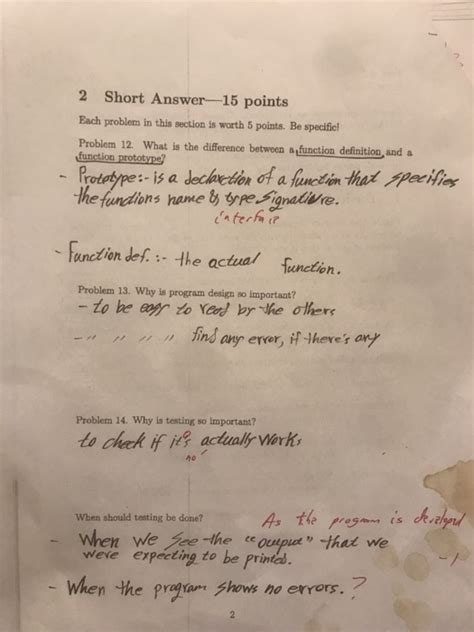 2 Short Answer—15 points
Each problem in this section is worth 5 points. Be specific!
Problem 12. What is the difference between a function definition and a
function prototype?
- Prototype:- is a declaration of a function that specifies
the functions name & type signature.
interface
- Function def. :- the actual function.
Problem 13. Why is program design so important?
- to be easy to read by the others
- " " " " find any error, if there's any
Problem 14. Why is testing so important?
to check if it's actually works
no
When should testing be done?
As the program is developed
- When we see the "output" that we
were expecting to be printed.
-1
- When the program shows no errors. ?
2